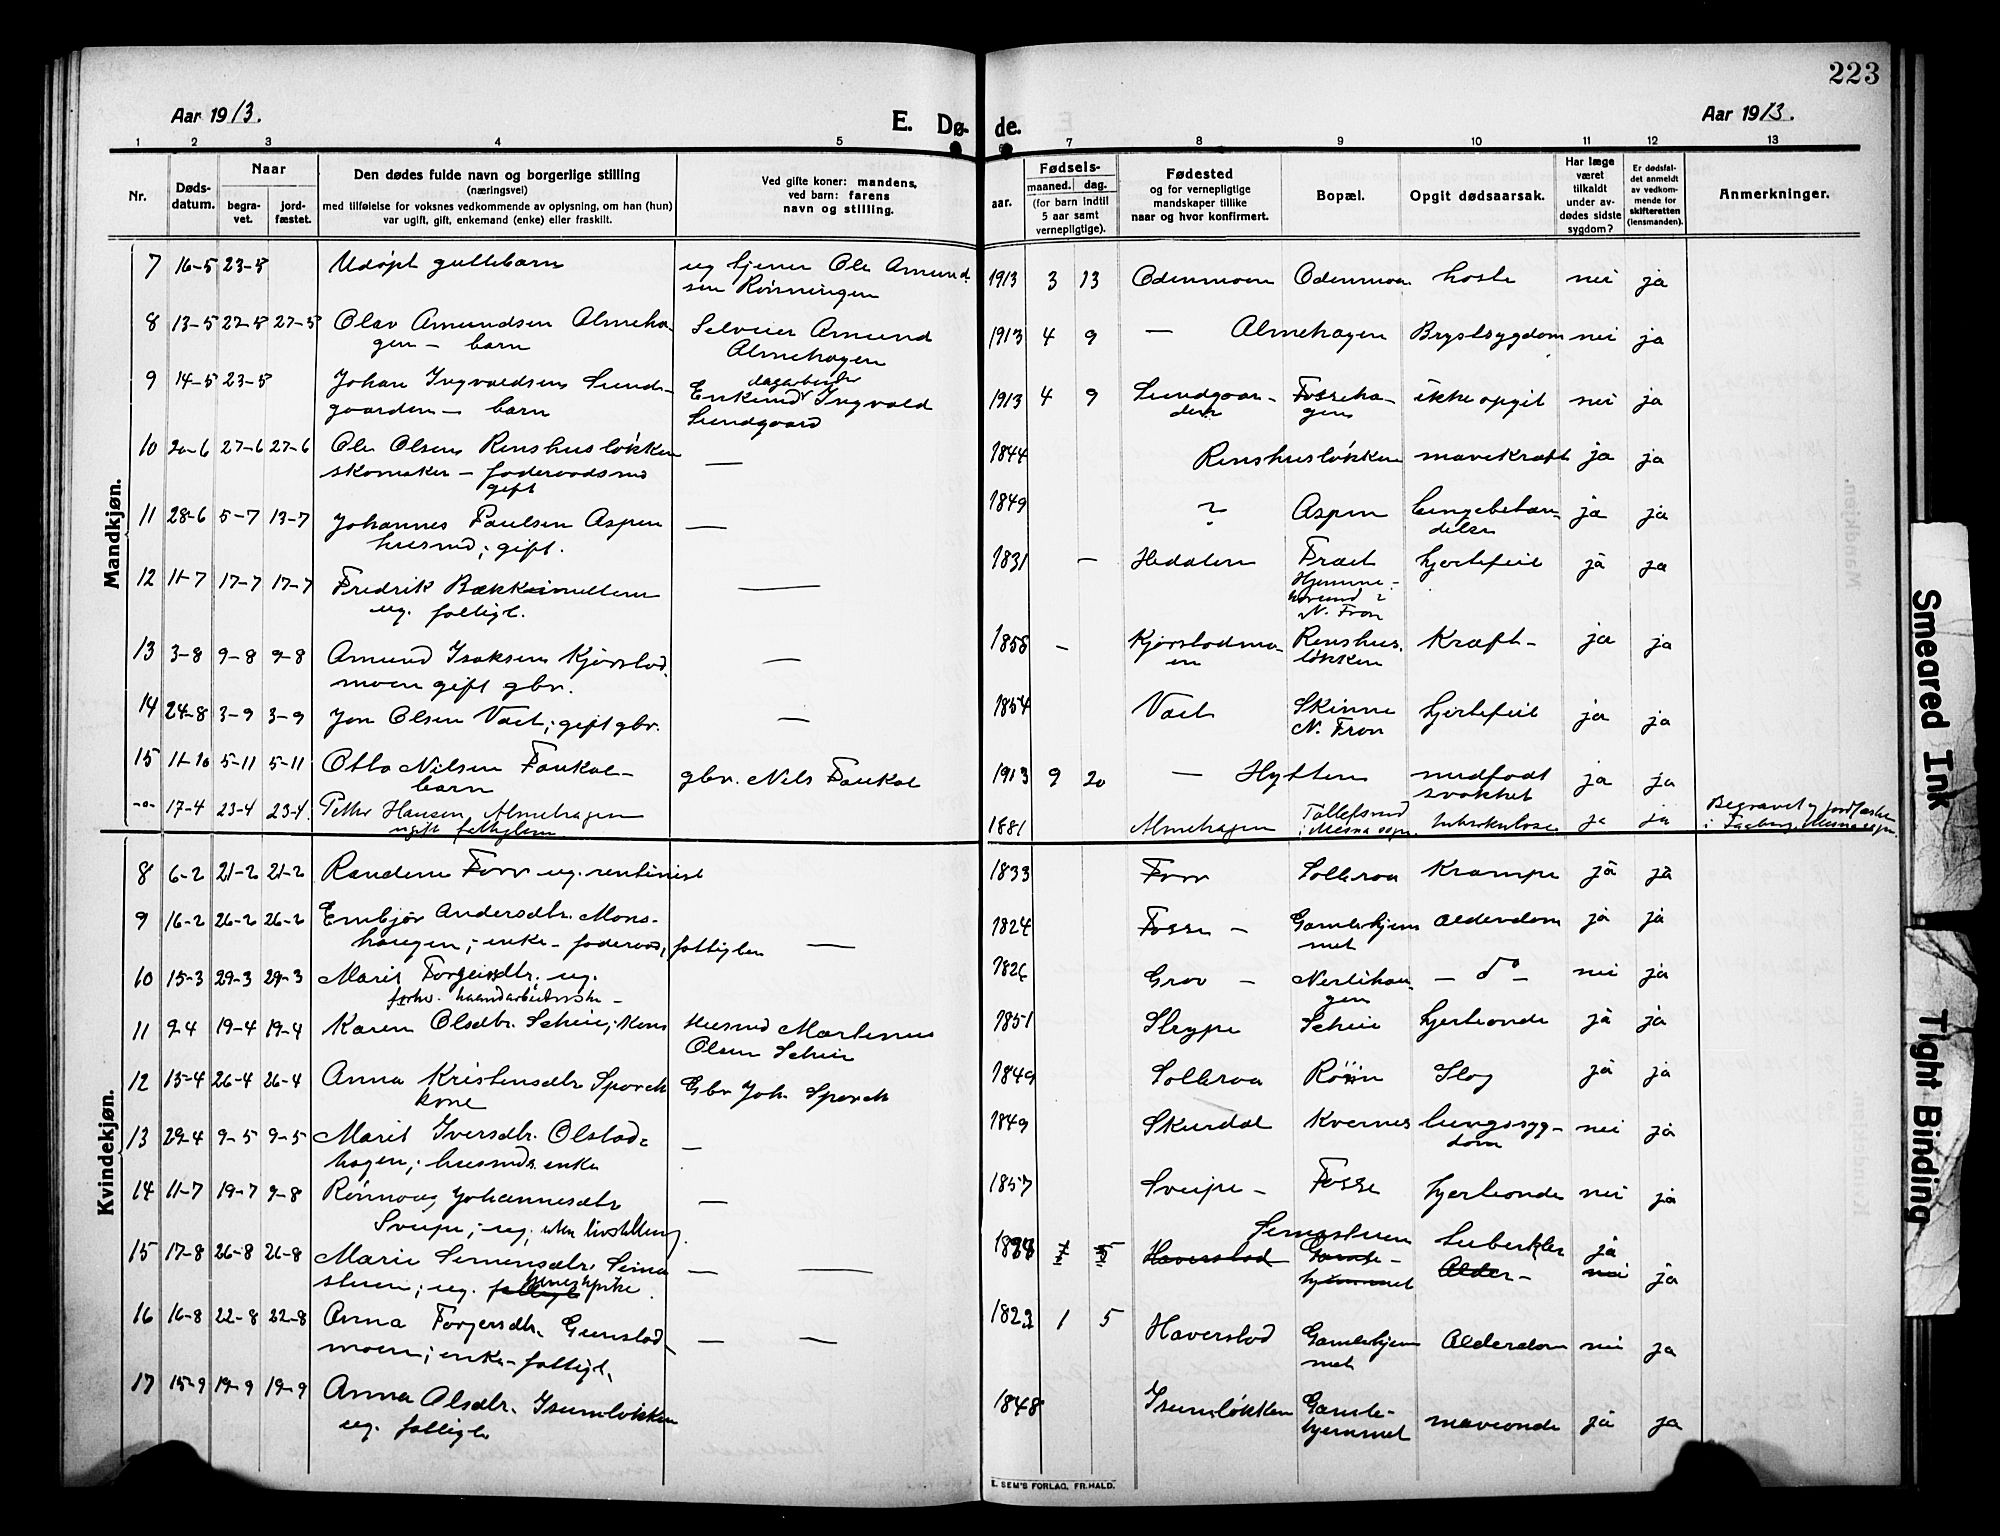 223
Aar 1913.
E. Dø-
de.
Aar 1913.
1 2 3 4 5
6 7 8 9 10 11 12 13
Nr.
Døds-
datum.
Naar
begra-
vet.
jord-
fæstet.
Den dødes fulde navn og borgerlige stilling
(næringsvei)
med tilføielse for voksnes vedkommende av oplysning, om han (hun)
var ugift, gift, enkemand (enke) eller fraskilt.
Ved gifte koner: mandens,
ved barn: farens
navn og stilling.
Fødsels-
aar.
maaned. dag.
(for barn indtil
5 aar samt
vernepligtige).
Fødested
og for vernepligtige
mandskaper tillike
naar og hvor konfirmert.
Bopæl.
Opgit dødsaarsak.
Har læge
været
tilkaldt
under av-
dødes sidste
sygdom?
Er dødsfal-
det anmeldt
av vedkom-
mende for
skifteretten
(lensmanden).
Anmerkninger.
Mandkjøn.
7 16-5 23-5 Udøpt guttebarn ug tjener Ole Amund-
sen Rønningen 1913 3 13 Odenmoen Odenmoen hoste nei ja
8 13-5 27-5 27-5 Olav Amundsen Almeha-
gen - barn Selveier Amund
Almehagen 1913 4 9 — Almehagen Brystsygdom nei ja
9 14-5 23-5 Johan Ingvaldsen Sund-
gaarden - barn dagarbeider
Enkemd Ingvald
Sundgaard 1913 4 9 Sundgaar-
den Fosseha-
gen ikke opgit nei ja
10 20-6 27-6 27-6 Ole Olsen Renshusløkken
skomaker - foderaadsmd
gift — 1844 Renshusløkken mavekræft ja ja
11 28-6 5-7 13-7 Johannes Paulsen Aspen
husmd; gift. — 1849 ? Aspen Lungebetæn-
delse ja ja
12 11-7 17-7 17-7 Fredrik Bækkemellem
ug. fattigl. — 1831 - Hedalen Fræt
Hjemme-
hørend i
N. Fron hjertefeil ja ja
13 3-8 9-8 9-8 Amund Isaksen Kjørstad-
moen gift gbr. — 1858 - Kjørstadmo-
en Renshus-
løkken Kræft- ja ja
14 24-8 3-9 3-9 Jon Olsen Volt; gift gbr. — 1854 Volt Skinne
N. Fron hjertefeil ja ja
15 11-10 5-11 5-11 Otto Nilsen Faukal-
barn gbr. Nils Faukal 1913 9 20 — Hytten medfødt
svakhet ja ja
-"- 17-4 23-4 23-4. Petter Hansen Almehagen
ugift fattiglem 1881 Almehagen Tollefsrud
i Mesna sogn. tuberkulose ja ja Begravet og jordfæstet
i Faaberg, Mesna sogn.
Kvindekjøn.
8 6-2 21-2 21-2 Randine Forr ug. rentenist 1833 Forr Solbraa Krampe ja ja
9 16-2 26-2 26-2 Embjør Andersdtr. Mons-
haugen; enke - foderaad, fattiglem — 1824 Fosse - Gamlehjem
met Alderdom ja ja
10 15-3 29-3 29-3 Marit Torgeirsdtr. ug.
forhv. haandarbeiderske - 1826 Grov - Nerlihau-
gen - do - nei ja
11 9-4 19-4 19-4 Karen Olsdtr. Scheie; kone Husmd Martinus
Olsen Scheie 1851 Sleype Scheie hjerteonde ja ja
12 15-4 26-4 26-4 Anna Kristensdtr Sporch
kone Gbr Joh. Sporch 1849 Solbraa Røiin Slag ja ja
13 29-4 9-5 9-5 Marit Iversdtr. Olstad-
hagen; husmds. enke — 1849 Skurdal Kvernes lungesyg-
dom nei ja
14 11-7 19-7 9-8 Rønnaug Johannesdtr
Sveipe; ug, uten livsstilling. — 1857 Sveipe - Fosse hjerteonde nei ja
15 17-8 26-8 26-8 Marie Simensdtr. Simen-
stuen; ug. fattigl tjenestpike. — — 1894 1 5 Haverstad Simenstuen
Gamle-
hjemmet Tuberkler
Alder- ja
nei ja
16 16-8 22-8 22-8 Anna Torgersdtr. Gunstad-
moen; enke - fattigl. — — 1823 1 5 Haverstad Gamlehjem
met Alderdom nei ja
17 15-9 19-9 19-9 Anna Olsdtr. Isumløkken
ug. fattigle 1848 Isumløkken Gamle-
hjemmet maveonde ja ja
E. SEM'S FORLAG, FR.HALD.
Smeared Ink
Tight Binding